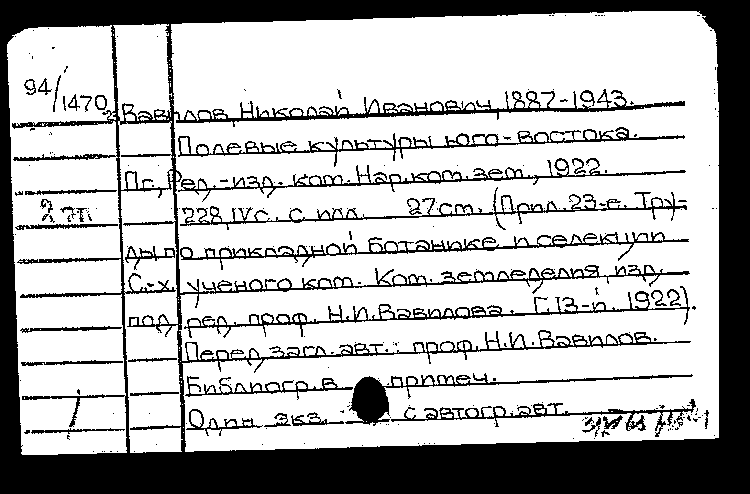 94/1470
Вавилов, Николай Иванович, 1887-1943.
Полевые культуры юго-востока.
Пг., Ред.-изд. ком. Нар. ком. зем., 1922.
2 эп
228, IV с. с илл. 27 cm. (Прил. 23-е. Тру-
ды по прикладной ботанике и селекции
С.-х. ученого ком. Ком. земледелия, изд.
под ред. проф. Н.И. Вавилова. Г. 13-й. 1922).
Перед загл. авт.: проф. Н.И. Вавилов.
Библиогр. в примеч.
Один экз. с автогр. авт.